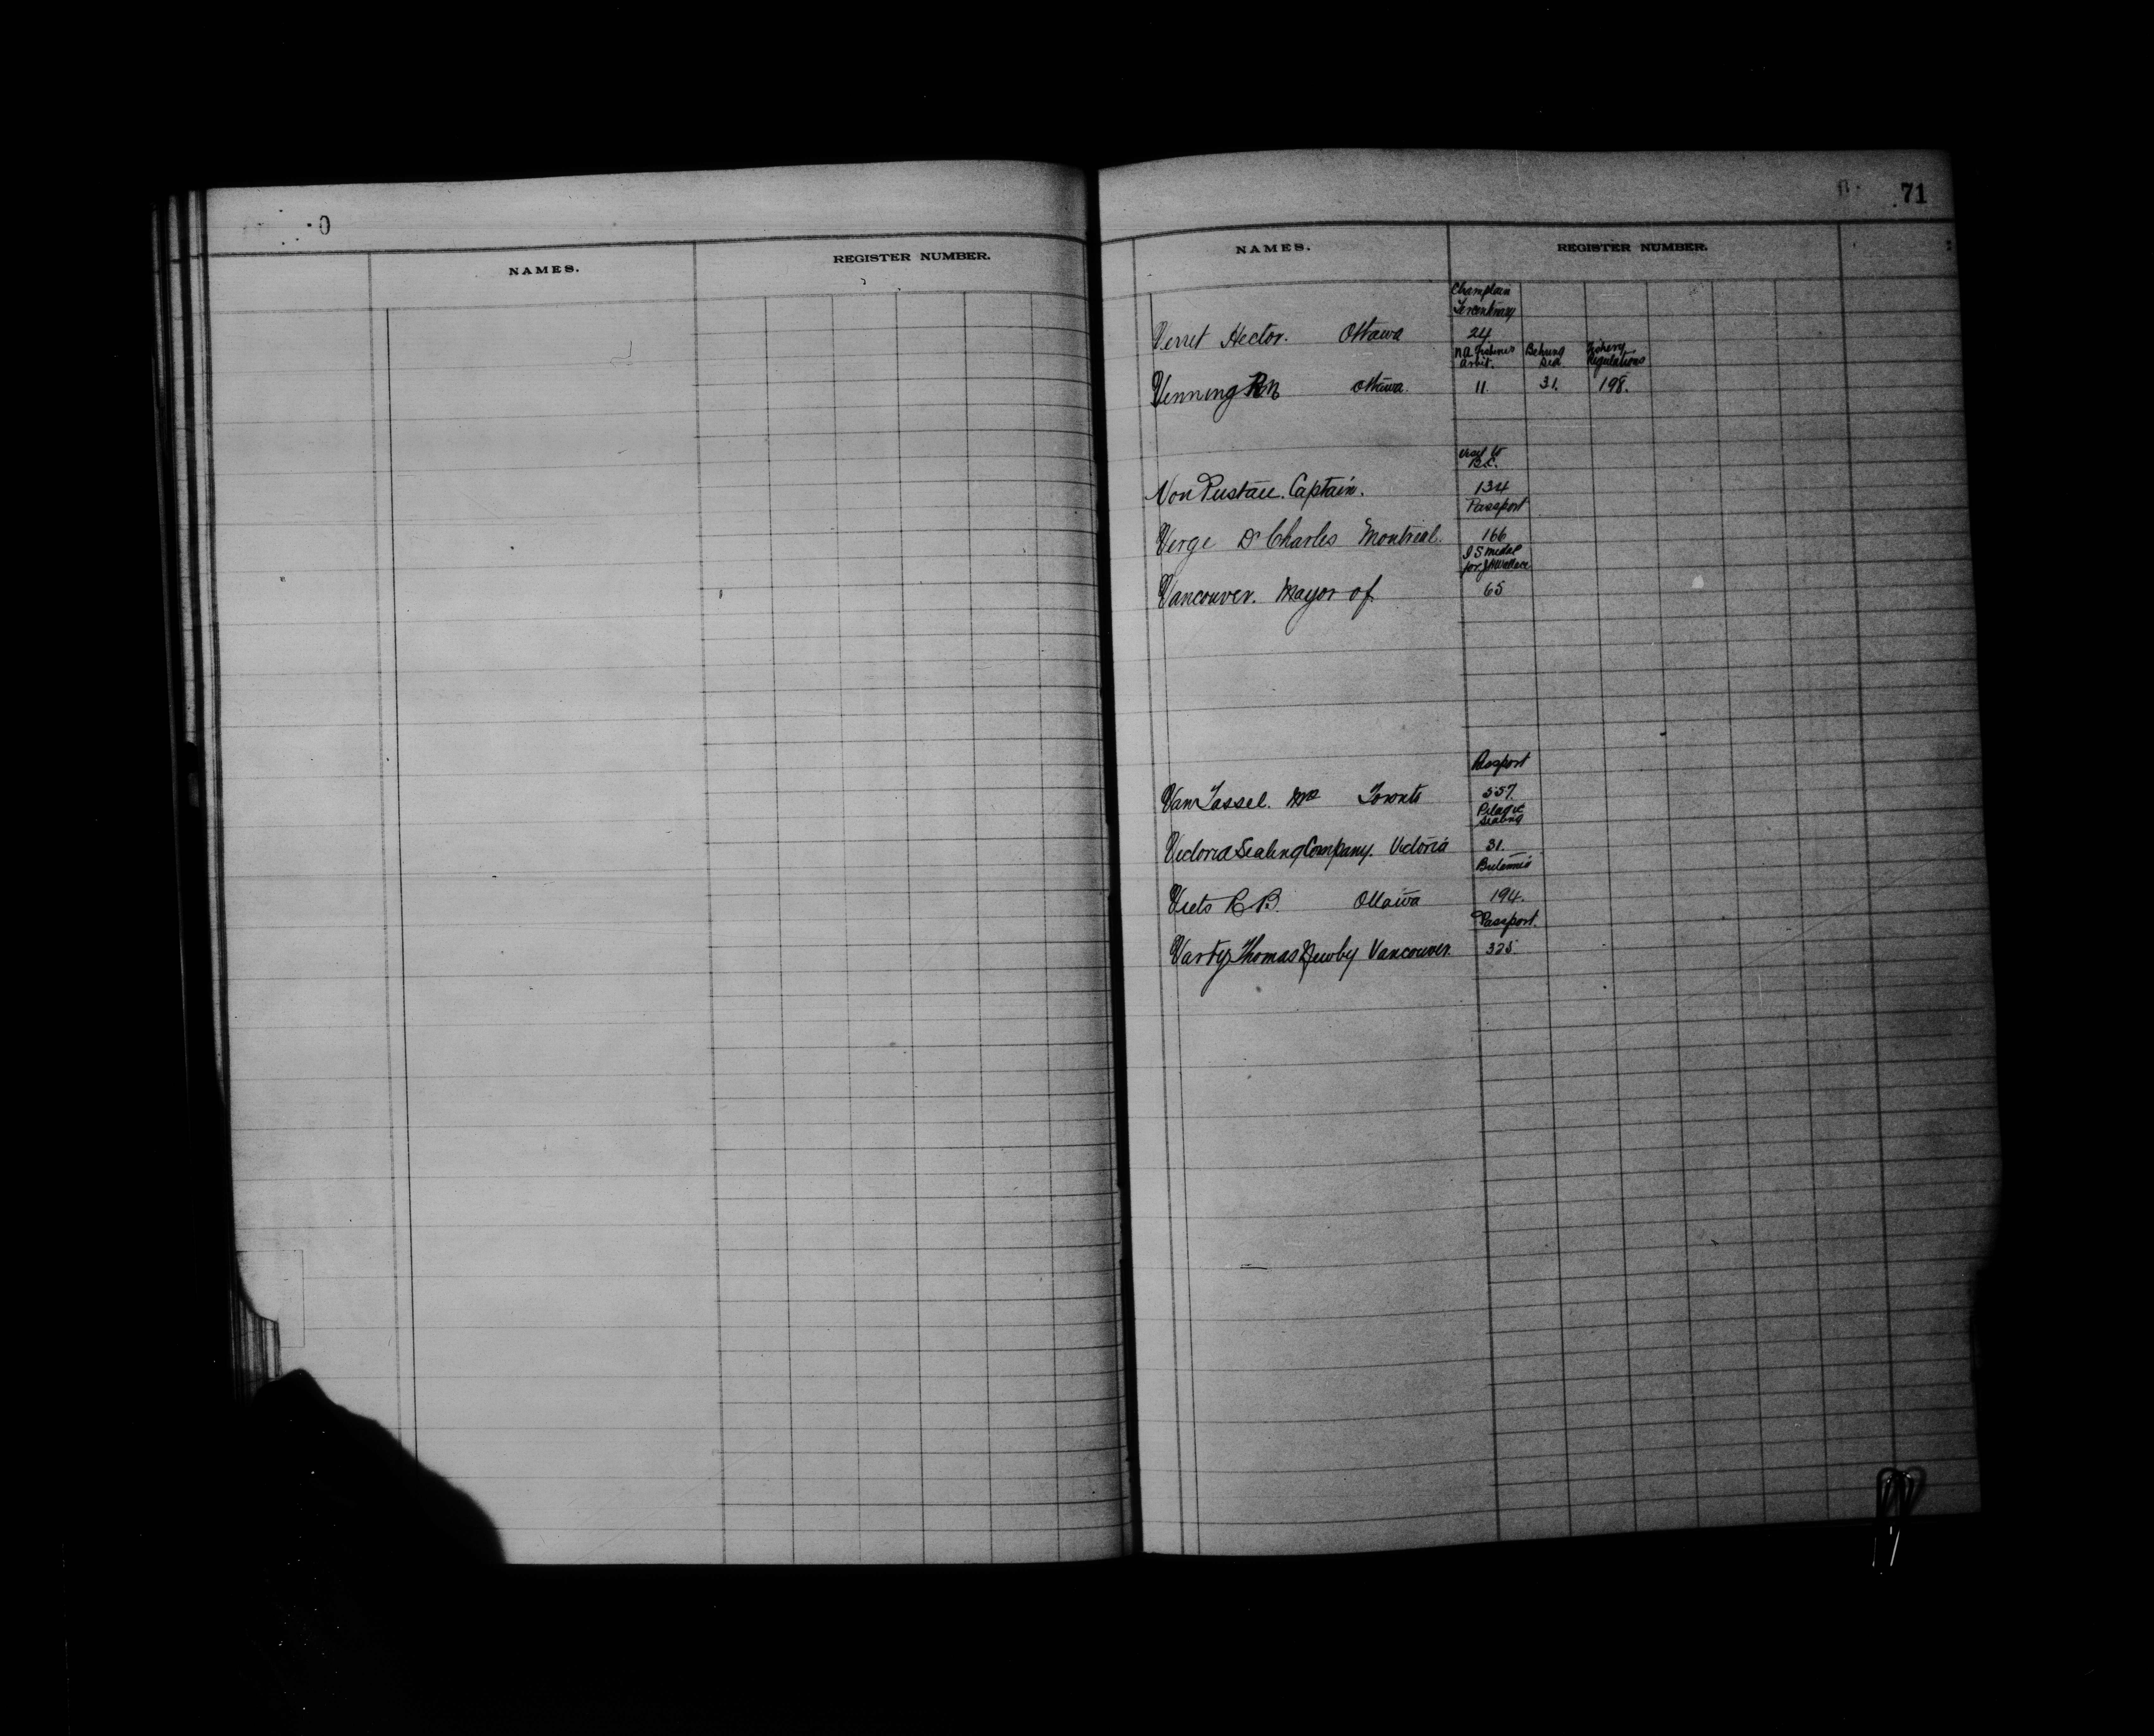 0
NAMES.
REGISTER NUMBER.
71
NAMES.
REGISTER NUMBER.
Champlain
Tercentenary
Verret Hector. Ottawa 24
N A Fisheries Arbit. Behring Sea Fishery Regulations
Venning R N Ottawa. 11. 31. 198.
Visit to
B.C.
Von Pustau. Captain. 134
Passport
Verge Dr Charles Montreal. 166
I S medal
for J H Wallace
Vancouver. Mayor of 65
Passport
Van Tassel. Mrs Toronto 557.
Pelagic
Sealing
Victoria Sealing Company. Victoria 31.
Vets R B. Ottawa 194.
Passport.
Varty Thomas Newby Vancouver. 325.